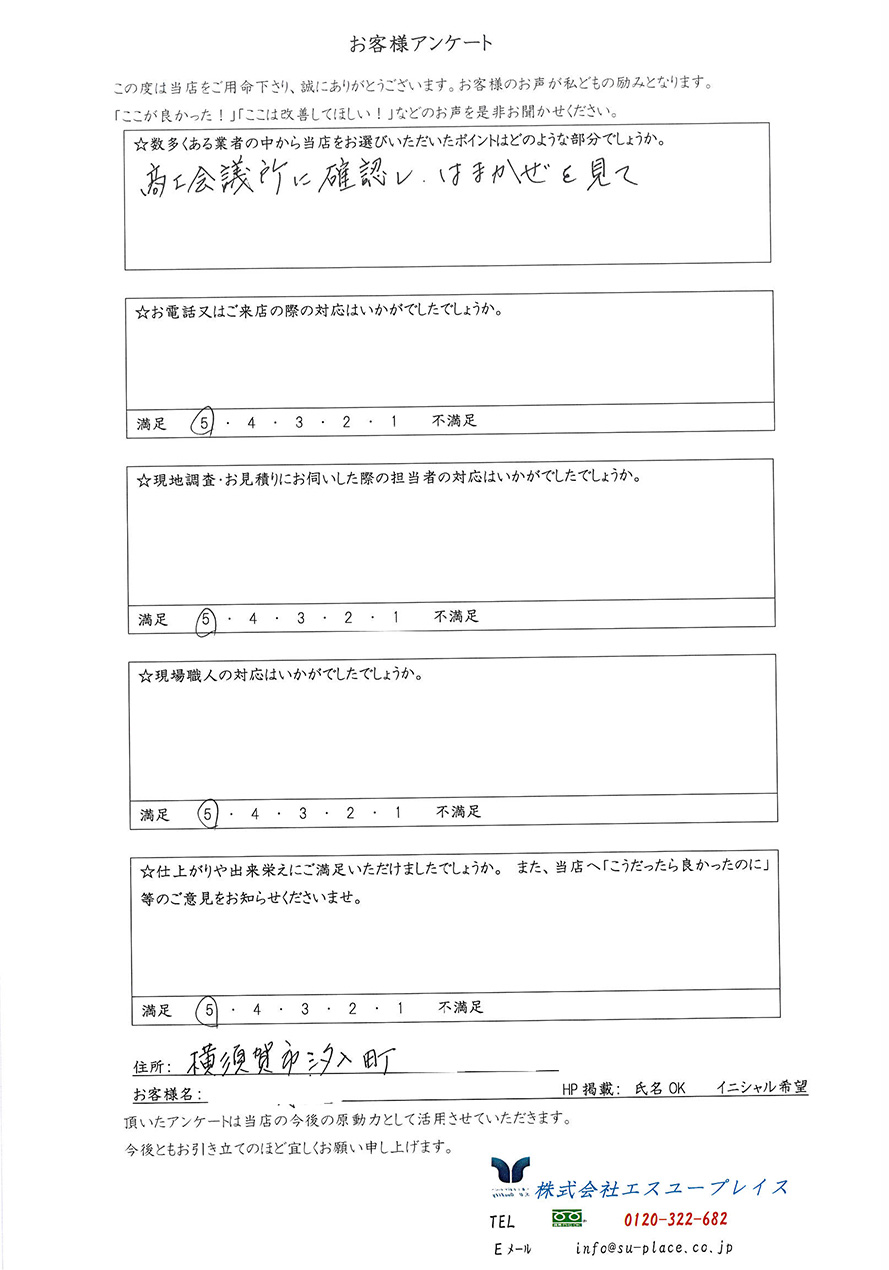 お客様アンケート
この度は当店をご用命下さり、誠にありがとうございます。お客様のお声が私どもの励みとなります。
「ここが良かった！」「ここは改善してほしい！」などのお声を是非お聞かせください。
☆数多くある業者の中から当店をお選びいただいたポイントはどのような部分でしょうか。
商工会議所に確認し、はまかぜを見て
☆お電話又はご来店の際の対応はいかがでしたでしょうか。
満足 5 ・ 4 ・ 3 ・ 2 ・ 1 不満足
☆現地調査・お見積りにお伺いした際の担当者の対応はいかがでしたでしょうか。
満足 5 ・ 4 ・ 3 ・ 2 ・ 1 不満足
☆現場職人の対応はいかがでしたでしょうか。
満足 5 ・ 4 ・ 3 ・ 2 ・ 1 不満足
☆仕上がりや出来栄えにご満足いただけましたでしょうか。 また、当店へ「こうだったら良かったのに」
等のご意見をお知らせくださいませ。
満足 5 ・ 4 ・ 3 ・ 2 ・ 1 不満足
住所： 横須賀市汐入町
お客様名： HP掲載： 氏名OK イニシャル希望
頂いたアンケートは当店の今後の原動力として活用させていただきます。
今後ともお引き立てのほど宜しくお願い申し上げます。
株式会社エスユープレイス
TEL 0120-322-682
Eメール info@su-place.co.jp